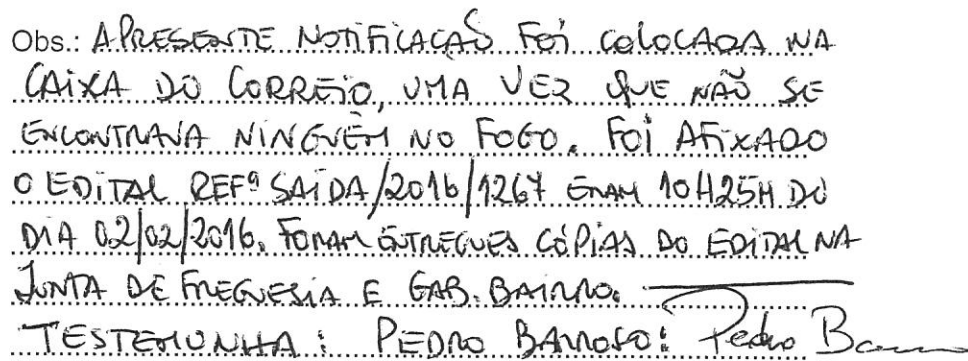 Obs.: A PRESENTE NOTIFICAÇÃO FOI COLOCADA NA
CAIXA DO CORREIO, UMA VEZ QUE NÃO SE
ENCONTRAVA NINGUÉM NO FOGO. FOI AFIXADO
O EDITAL REFª SAÍDA/2016/1267 ERAM 10H25M DO
DIA 02/02/2016. FORAM ENTREGUES CÓPIAS DO EDITAL NA
JUNTA DE FREGUESIA E GAB. BAIRRO.
TESTEMUNHA: PEDRO BARROSO: Pedro